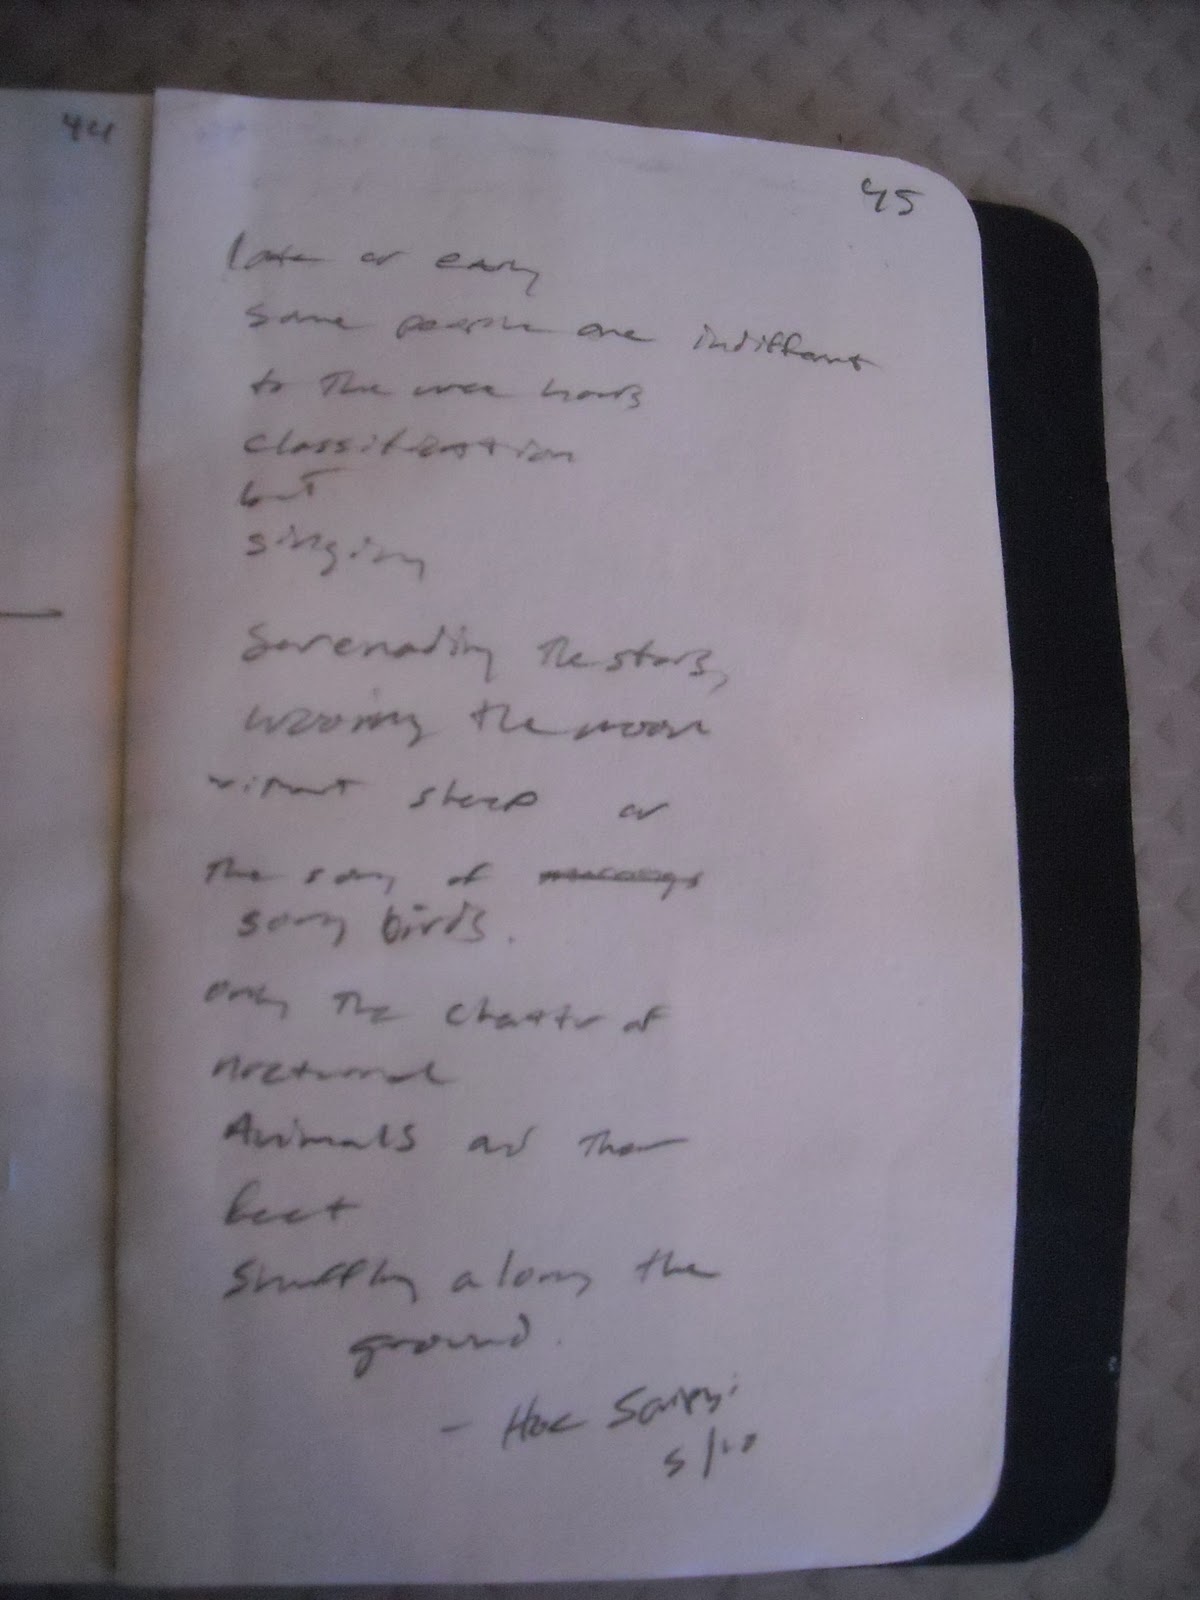 44
45
late or early
some people are indifferent
to the wee hours
classification
but
singing
Serenading the stars,
wooing the moon
without sleep or
the song of
song birds.
only the chatter of
nocturnal
Animals and their
feet
Shuffling along the
ground.
- Hoc Scripsi
5/10